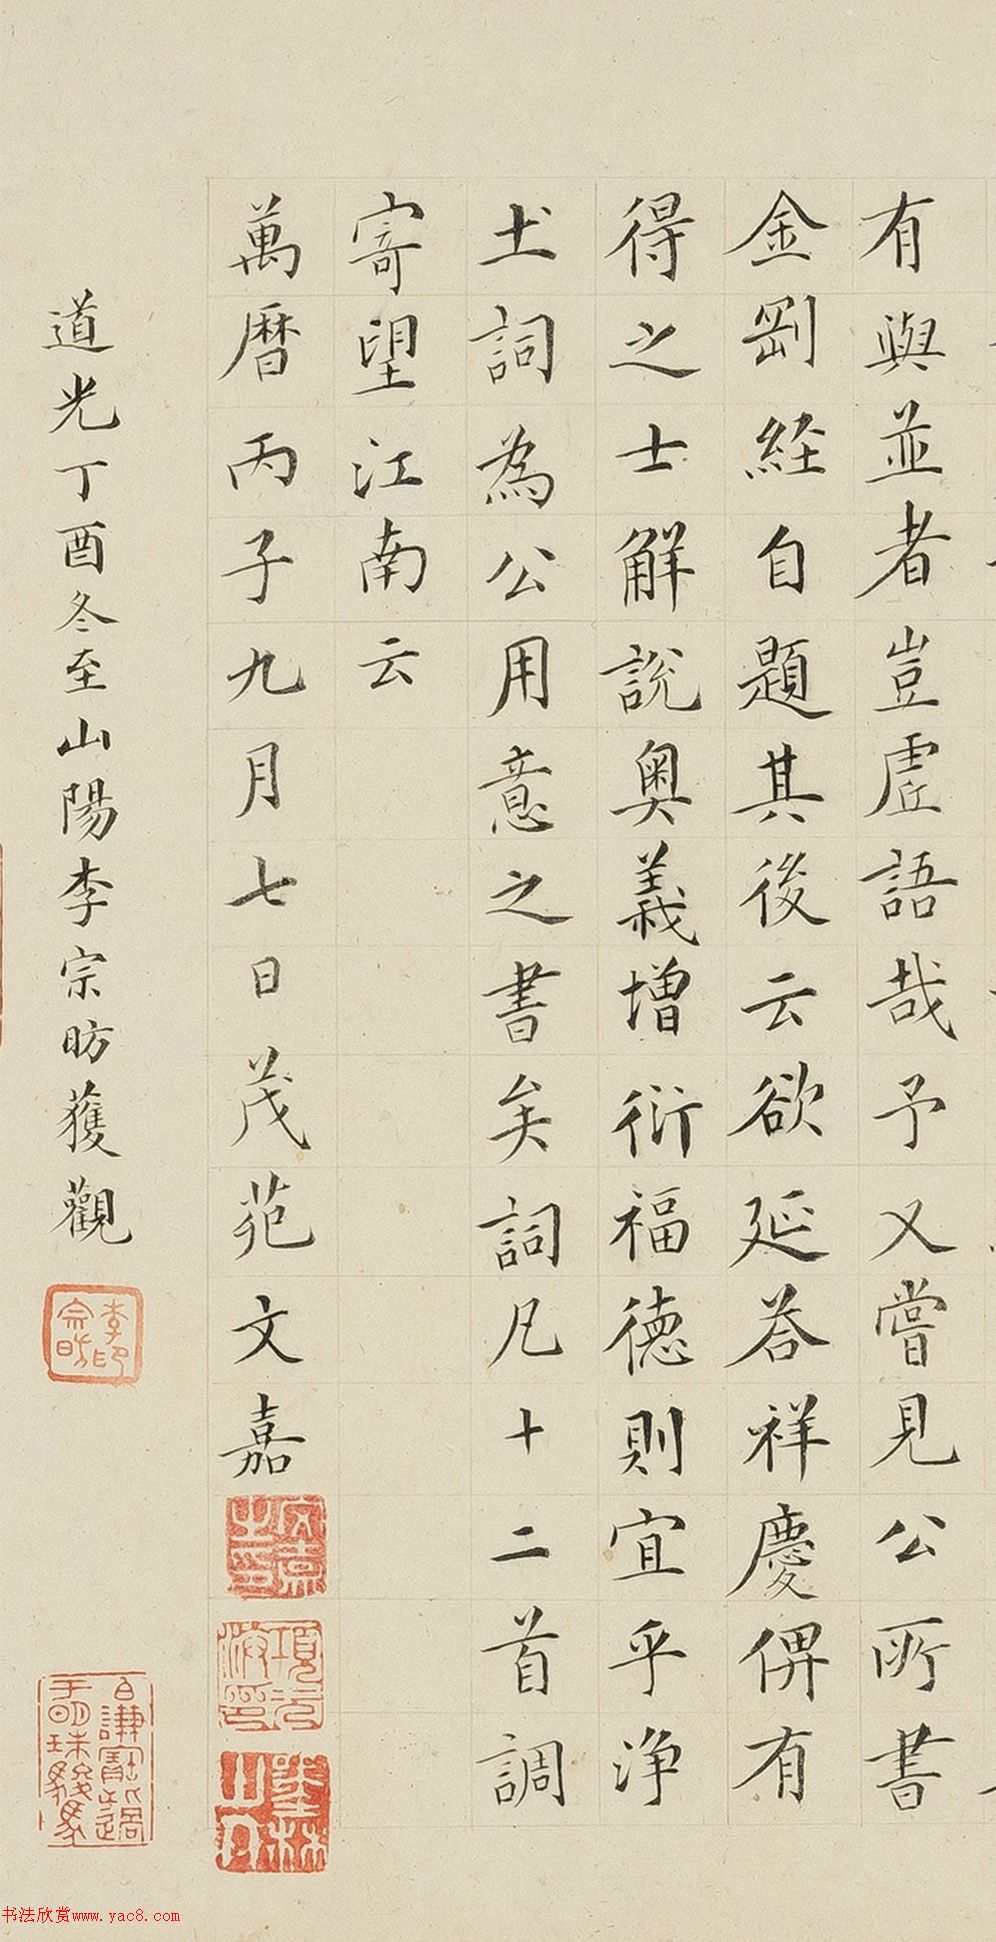 有與並者豈虗語哉予又嘗見公所書
金剛経自題其後云欲延荅祥慶俾有
得之士解説奥義増衍福德則宜乎浄
土詞為公用意之書矣詞凡十二首調
寄望江南云
萬曆丙子九月七日茂苑文嘉
道光丁酉冬至山陽李宗昉獲觀
李宗昉印
文嘉之印
项元汴印
墨林山人
书法欣赏www.yac8.com